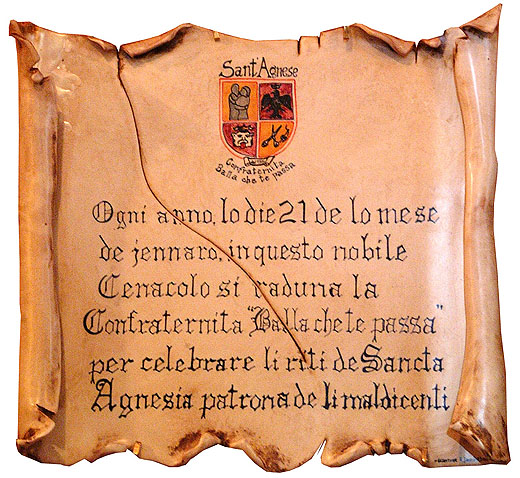 Sant'Agnese
Confraternita
Balla che te passa
Ogni anno, lo die 21 de lo mese
de jennaro, in questo nobile
Cenacolo si raduna la
Confraternita "Balla che te passa"
per celebrare li riti de Sancta
Agnesia patrona de li maldicenti